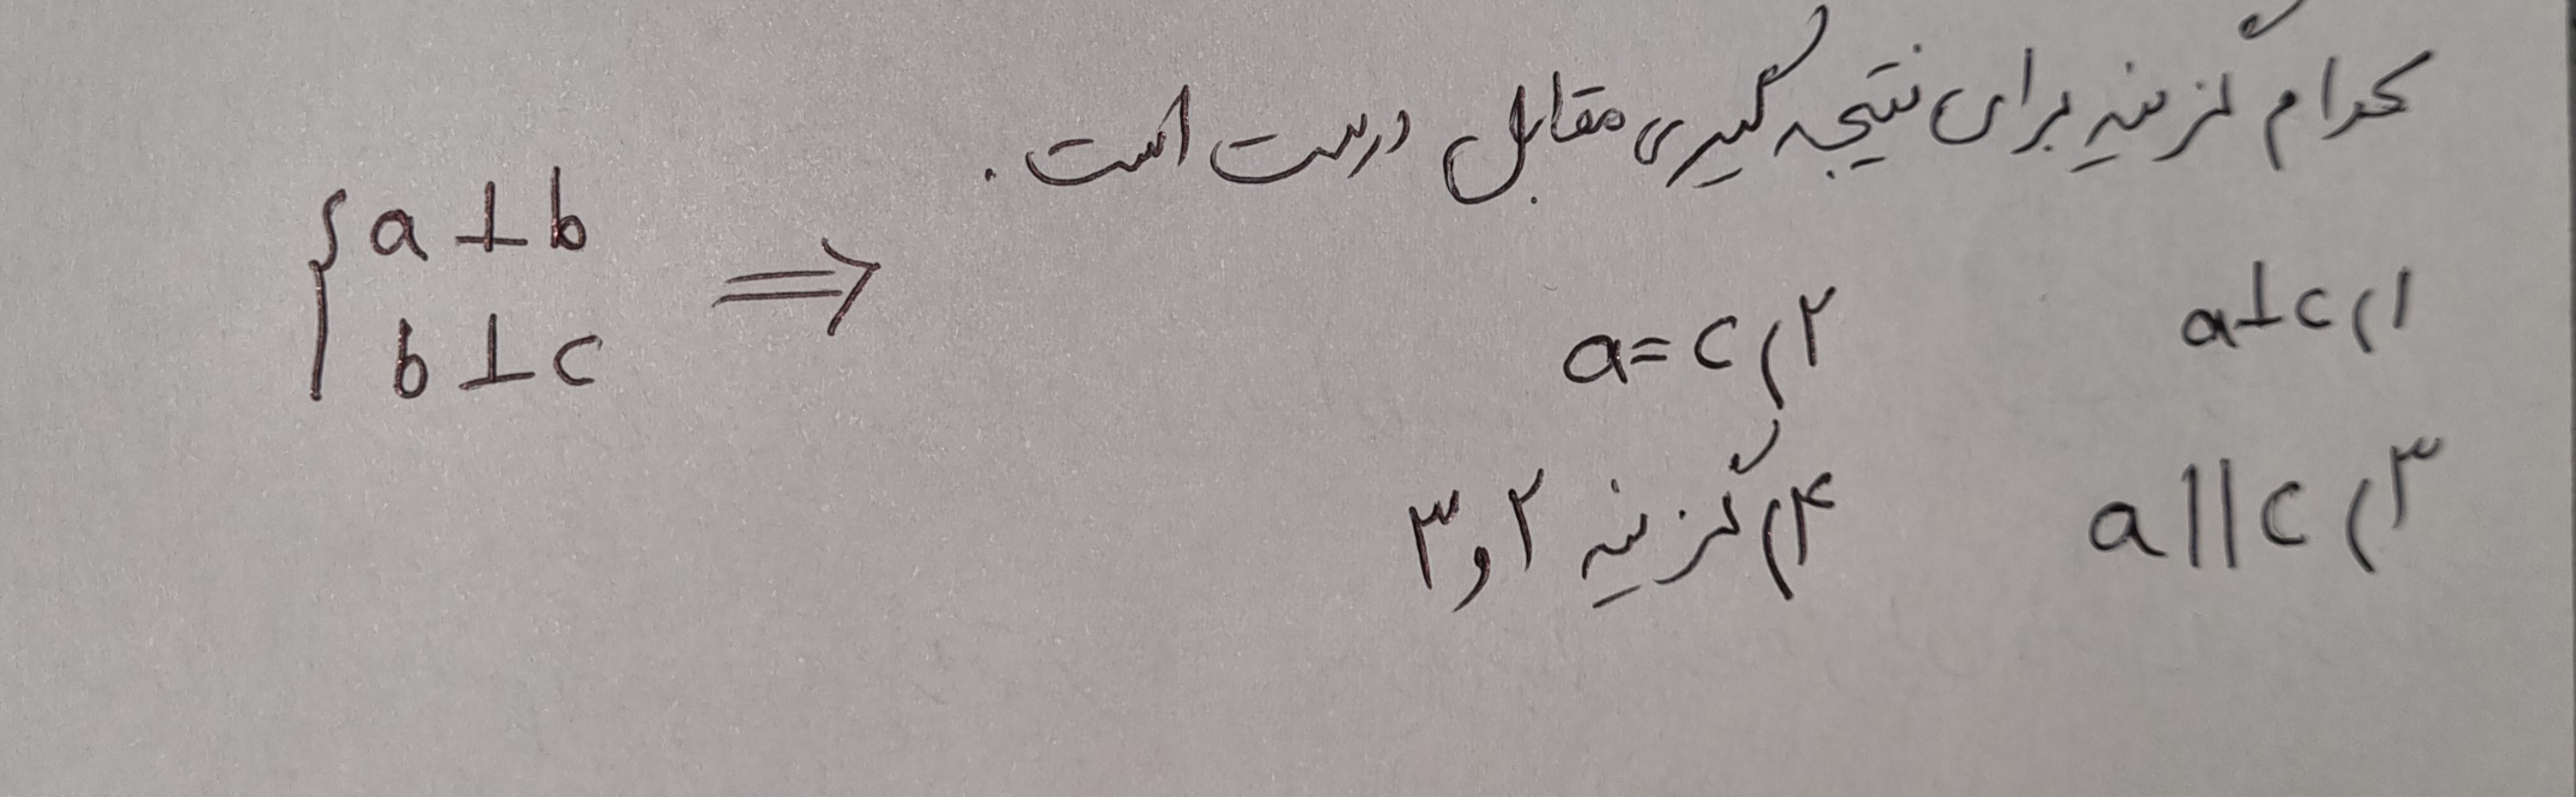 کدام گزینه برای نتیجه گیری مقابل درست است.
{ a ⊥ b
b ⊥ c ⇒
۱) a ⊥ c
۲) a = c
۳) a || c
۴) گزینه ۲ و ۳